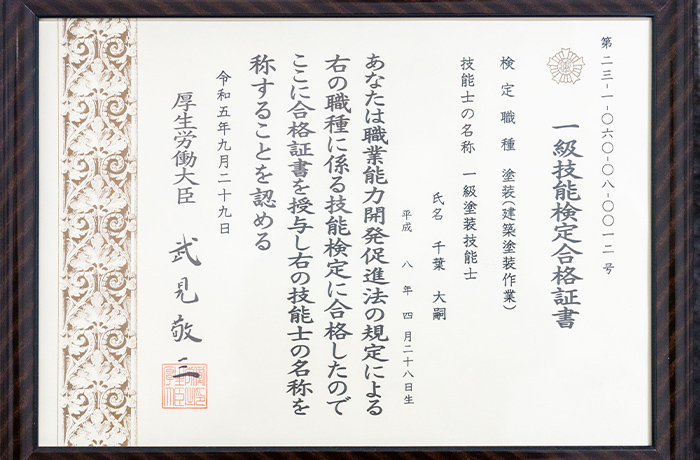 第二三-一-〇六〇-〇八-〇〇一二号
一級技能検定合格証書
検定職種 塗装(建築塗装作業)
技能士の名称 一級塗装技能士
氏名 千葉 大嗣
平成 八年 四月二十八日生
あなたは職業能力開発促進法の規定による
右の職種に係る技能検定に合格したので
ここに合格証書を授与し右の技能士の名称を
称することを認める
令和五年九月二十九日
厚生労働大臣 武見敬三